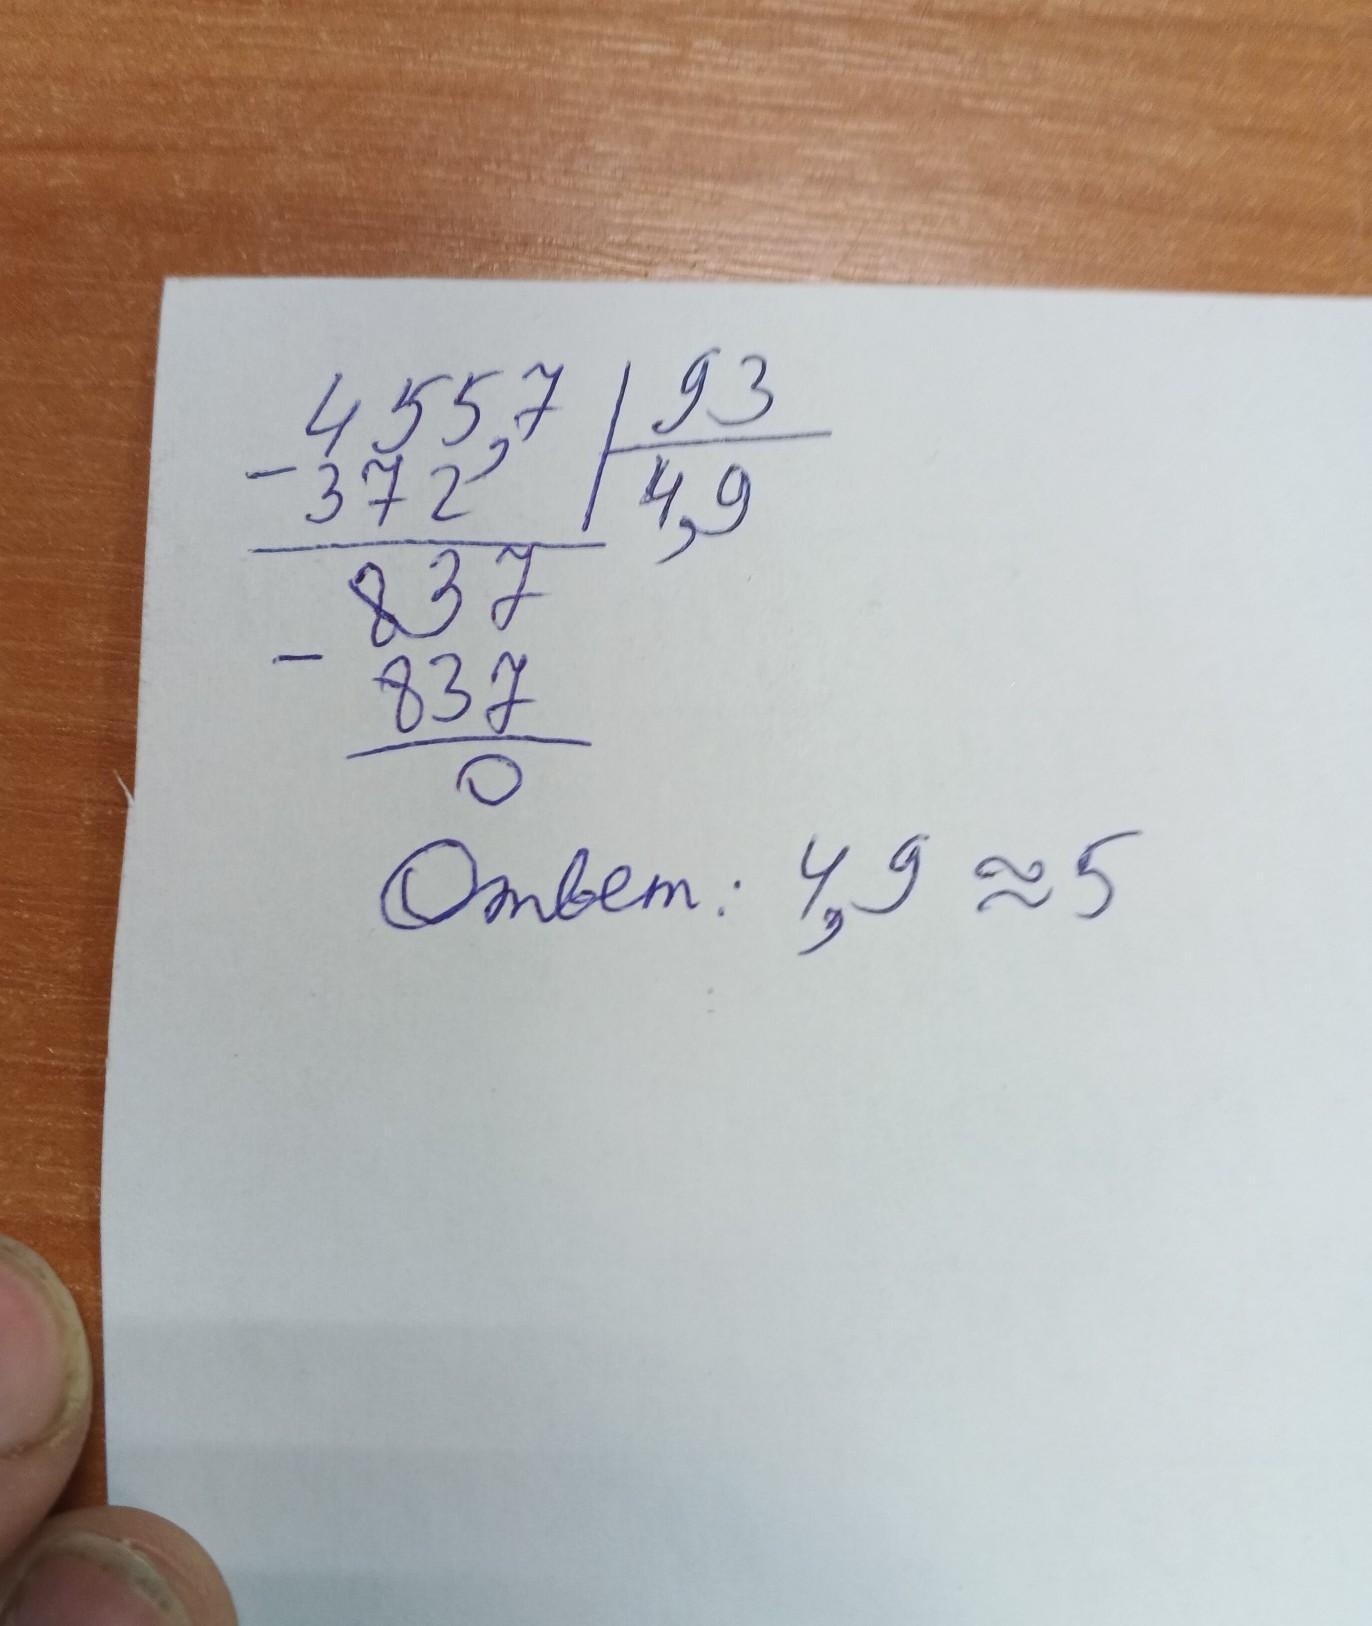 455,7 | 93
- 372 4,9
837
- 837
0
Ответ: 4,9 ≈ 5